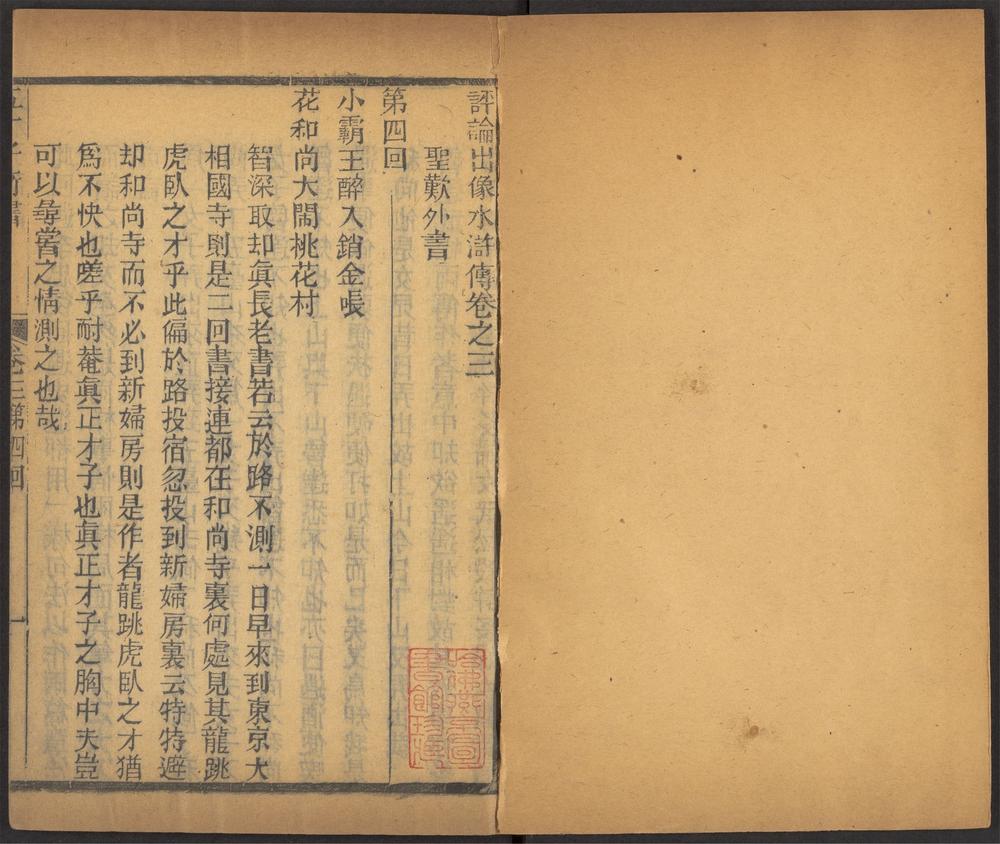 評論出像水滸傳卷之三
聖歎外書
第四回
小霸王醉入銷金帳
花和尚大鬧桃花村
智深取却眞長老書若云於路不測一日早來到東京大
相國寺則是二回書接連都在和尚寺裏何處見其龍跳
虎臥之才乎此偏於路投宿忽投到新婦房裏云特特避
却和尚寺而不必到新婦房則是作者龍跳虎臥之才猶
爲不快也嗟乎耐菴眞正才子也眞正才子之胸中夫豈
可以尋嘗之情測之也哉
卷三第四回
一